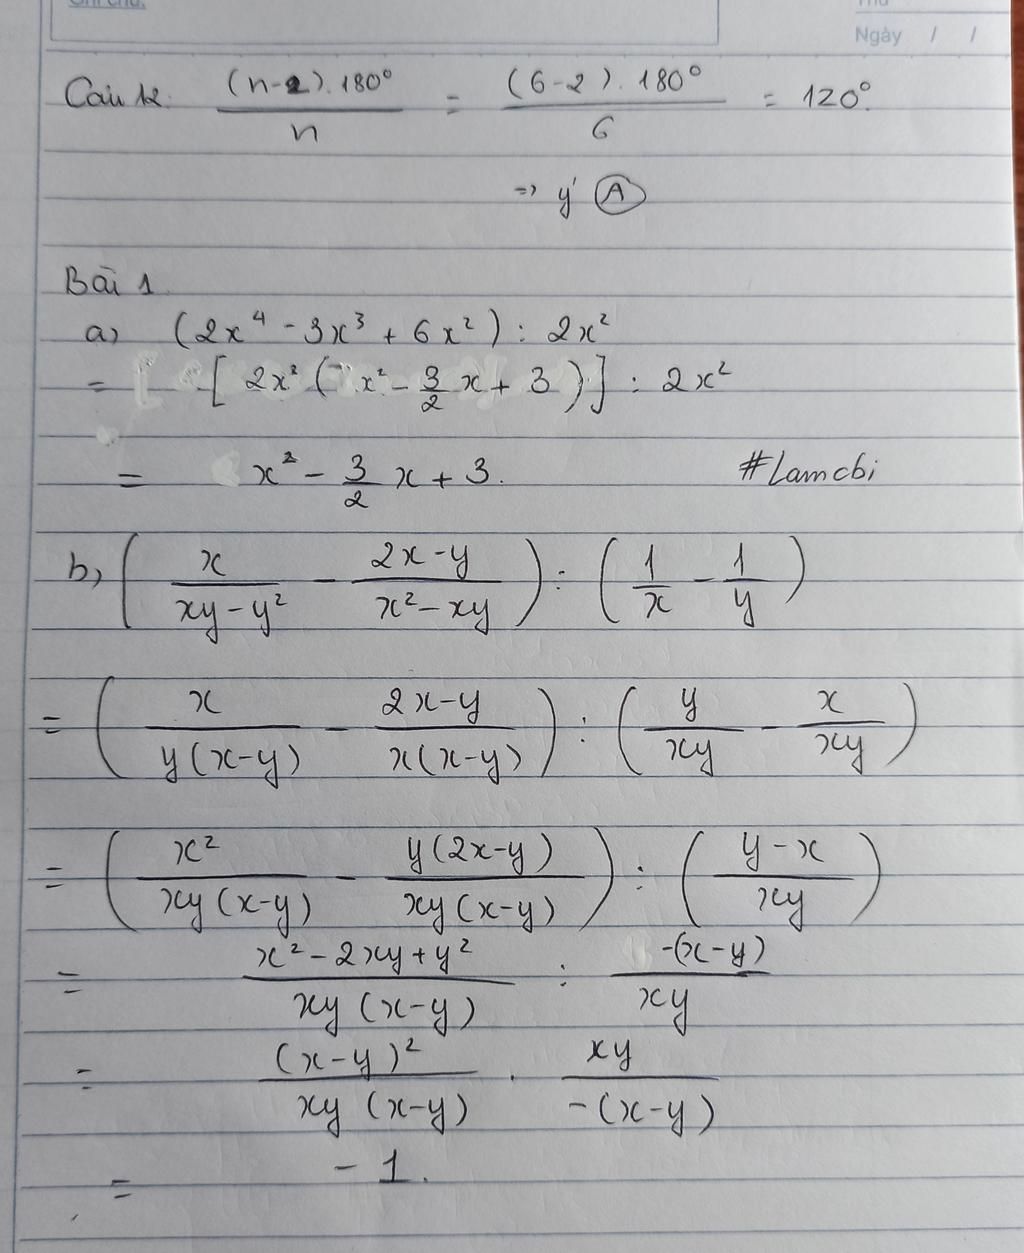 Ngày / /
Câu 12. (n-2).180° / n = (6-2).180° / 6 = 120°.
=> ý A
Bài 1
a) (2x⁴ - 3x³ + 6x²) : 2x²
= [2x²(x² - 3/2 x + 3)] : 2x²
= x² - 3/2 x + 3.
#Lamcbi
b) (x/(xy-y²) - (2x-y)/(x²-xy)) : (1/x - 1/y)
= (x/(y(x-y)) - (2x-y)/(x(x-y))) : (y/xy - x/xy)
= (x²/(xy(x-y)) - y(2x-y)/(xy(x-y))) : ((y-x)/xy)
= (x²-2xy+y²)/(xy(x-y)) : -(x-y)/xy
= (x-y)²/(xy(x-y)) . xy/(-(x-y))
= -1.